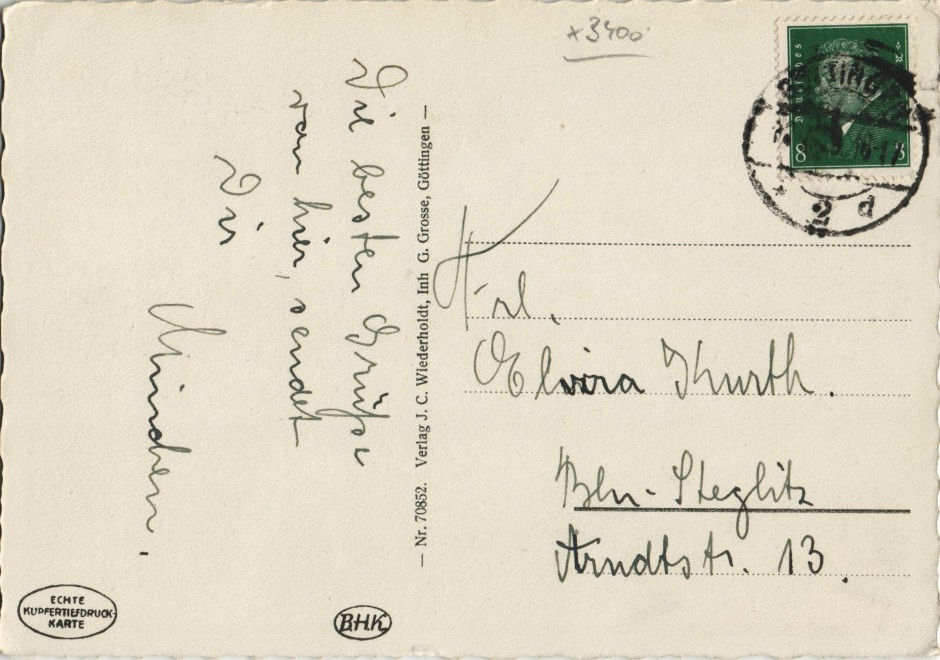 *3400
Deutsches
8 8
GÖTTINGEN
2 d
Die besten Grüße
von hier, sendet
Dir
Minchen.
— Nr. 70852. Verlag J. C. Wiederholdt, Inh G. Grosse, Göttingen —
Frl.
Elvira Kurth.
Bln-Steglitz
Arndtstr. 13.
ECHTE
KUPFERTIEFDRUCK-
KARTE
B.H.K.